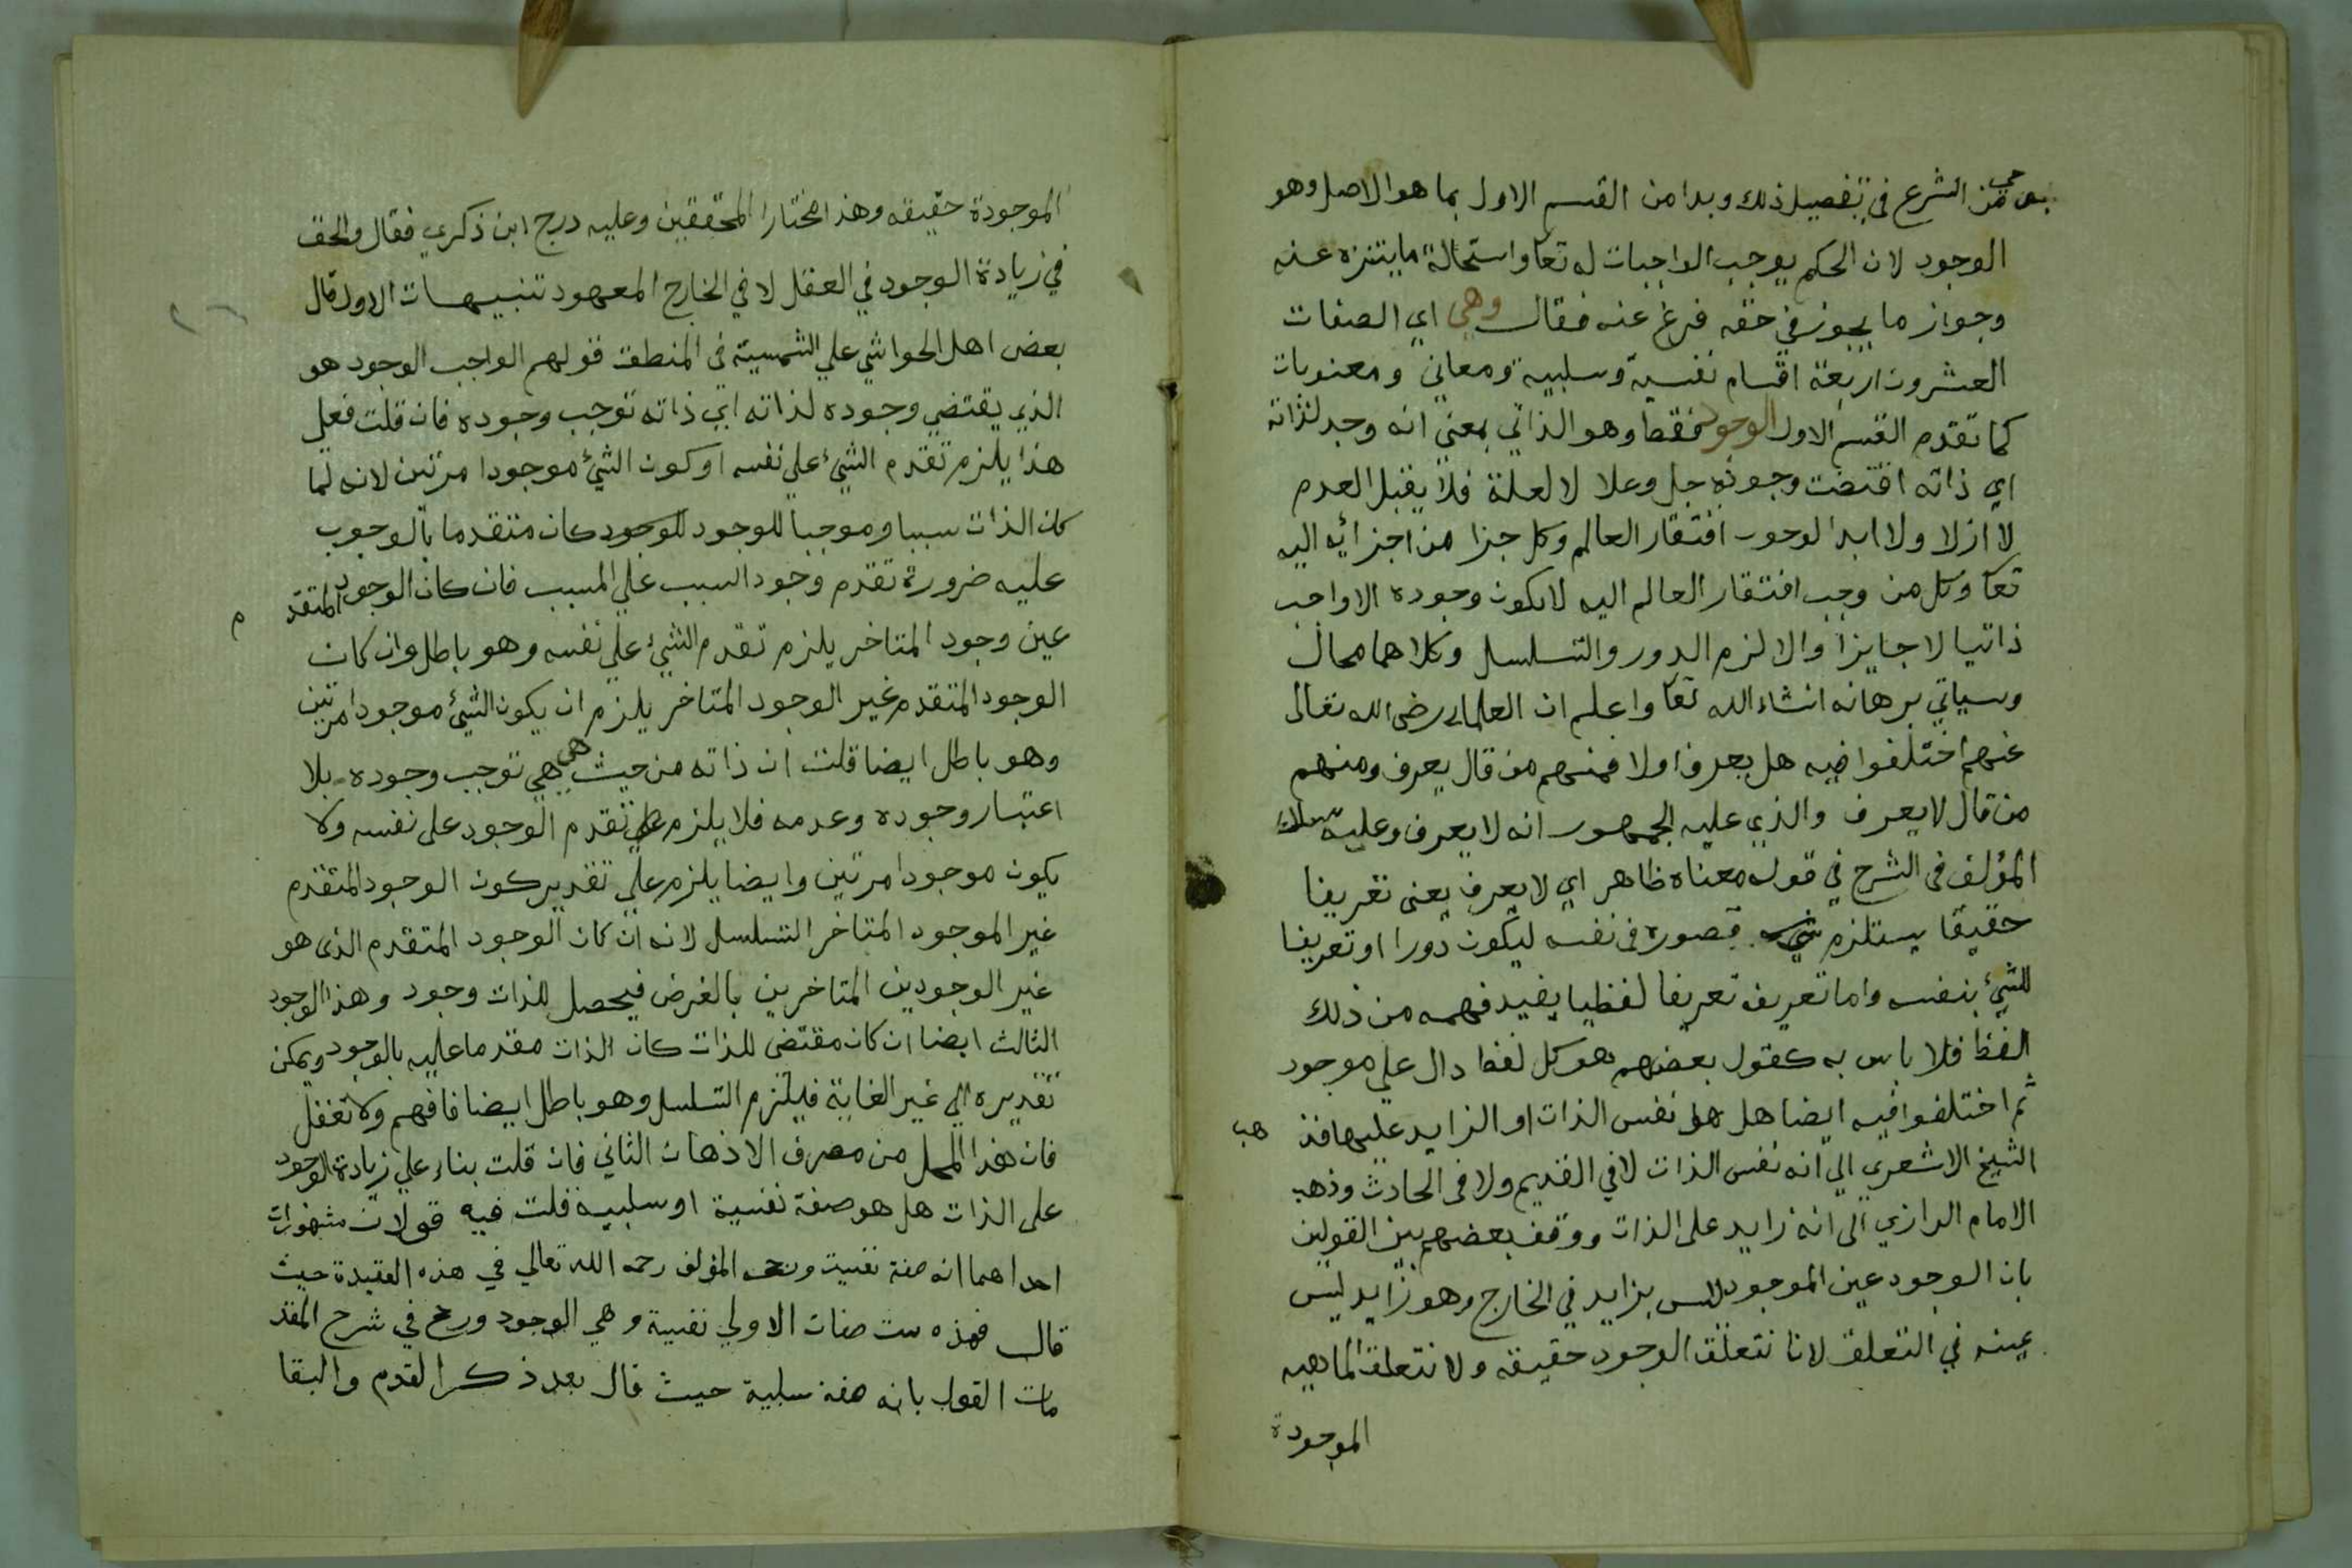 من الشرع في تفصيل ذلك وبدا من القسم الاول بما هو الاصل وهو
الوجود لان الحكم بوجب الواجبات له تعا واستحالة ما يتنزه عنه
وجواز ما يجوز في حقه فرع عنه فقال وهي اي الصفات
العشرون اربعة اقسام نفسية وسلبية ومعاني ومعنويات
كما تقدم القسم الاول الوجود فقط وهو الذاتي بمعني انه وجد لذاته
اي ذاته اقتضت وجوده جل وعلا لا لعلة فلا يقبل العدم
لا ازلا ولا ابدا لوجوب افتقار العالم وكل جزا من اجزائه اليه
تعا وكل من وجب افتقار العالم اليه لا يكون وجوده الا واجب
ذاتيا لا جايزا والا لزم الدور والتسلسل وكلاهما محال
وسياتي برهانه انشاء الله تعا واعلم ان العلماء رضى الله تعالى
عنهم اختلفوا فيه هل يعرف اولا فمنهم من قال يعرف ومنهم
من قال لا يعرف والذي عليه الجمهور انه لا يعرف وعليه
المؤلف فى الشرح في قوله معناه ظاهر اي لا يعرف يعنى تعريفا
حقيقا يستلزم تصوره فى نفسه ليكون دورا او تعريفا
للشئ بنفسه واما تعريف تعريفا لفظيا يفيد فهمه من ذلك
الفظ فلا باس به كقول بعضهم هو كل لفظ دال علي موجود
ثم اختلفوا فيه ايضا هل هو نفس الذات او الزايد عليها فذ هب
الشيخ الاشعري الي انه نفس الذات لا في القديم ولا فى الحادث وذهب
الامام الرازي الى انه زايد على الذات ووقف بعضهم بين القولين
بان الوجود عين الموجود ليس بزايد في الخارج وهو زايد ليس
عينه في التعلق لانا نتعلق الوجود حقيقه ولا نتعلق الماهيه
الموجودة
الموجودة حقيقه وهذا مختار المحققين وعليه درج ابن ذكري فقال والحق
في زيادة الوجود في العقل لا في الخارج المعهود تنبيهات الاول قال
بعض اهل الحواشي علي الشمسية فى المنطق قولهم الواجب الوجود هو
الذي يقتضي وجوده لذاته اي ذاته توجب وجوده فان قلت فعلي
هذا يلزم تقدم الشئ علي نفسه او كون الشئ موجودا مرتين لانه لما
كان الذات سببا وموجبا للوجود للوجود كان متقدما بالوجوب
عليه ضرورة تقدم وجود السبب علي المسبب فان كان الوجود المتقد م
عين وجود المتاخر يلزم تقدم الشئ علي نفسه وهو باطل وان كان
الوجود المتقدم غير الوجود المتاخر يلزم ان يكون الشئ موجودا مرتين
وهو باطل ايضا قلت ان ذاته من حيث هي هي توجب وجوده بلا
اعتبار وجوده وعدمه فلا يلزم تقدم الوجود على نفسه ولا
يكون موجودا مرتين وايضا يلزم علي تقدير كون الوجود المتقدم
غير الموجود المتاخر التسلسل لانه ان كان الوجود المتقدم الذى هو
غير الوجودين المتاخرين بالفرض فيحصل للذات وجود وهذا الوجود
الثالث ايضا ان كان مقتضى للذات كان الذات مقدما عليه بالوجود ويمكن
تقديره الي غير الغاية فيلزم التسلسل وهو باطل ايضا فافهم ولا تغفل
فان هذا المحل من مصرف الاذهان الثاني فان قلت بناء علي زيادة الوجود
على الذات هل هو صفة نفسية او سلبيه قلت فيه قولان مشهوران
احداهما انه صفة نفسية المؤلف رحمه الله تعالي في هذه العقيدة حيث
قال فهذه ست صفات الاولي نفسية وهي الوجود ورجح في شرح المقد
مات القول بانه صفة سلبية حيث قال بعد ذكر القدم والبقا